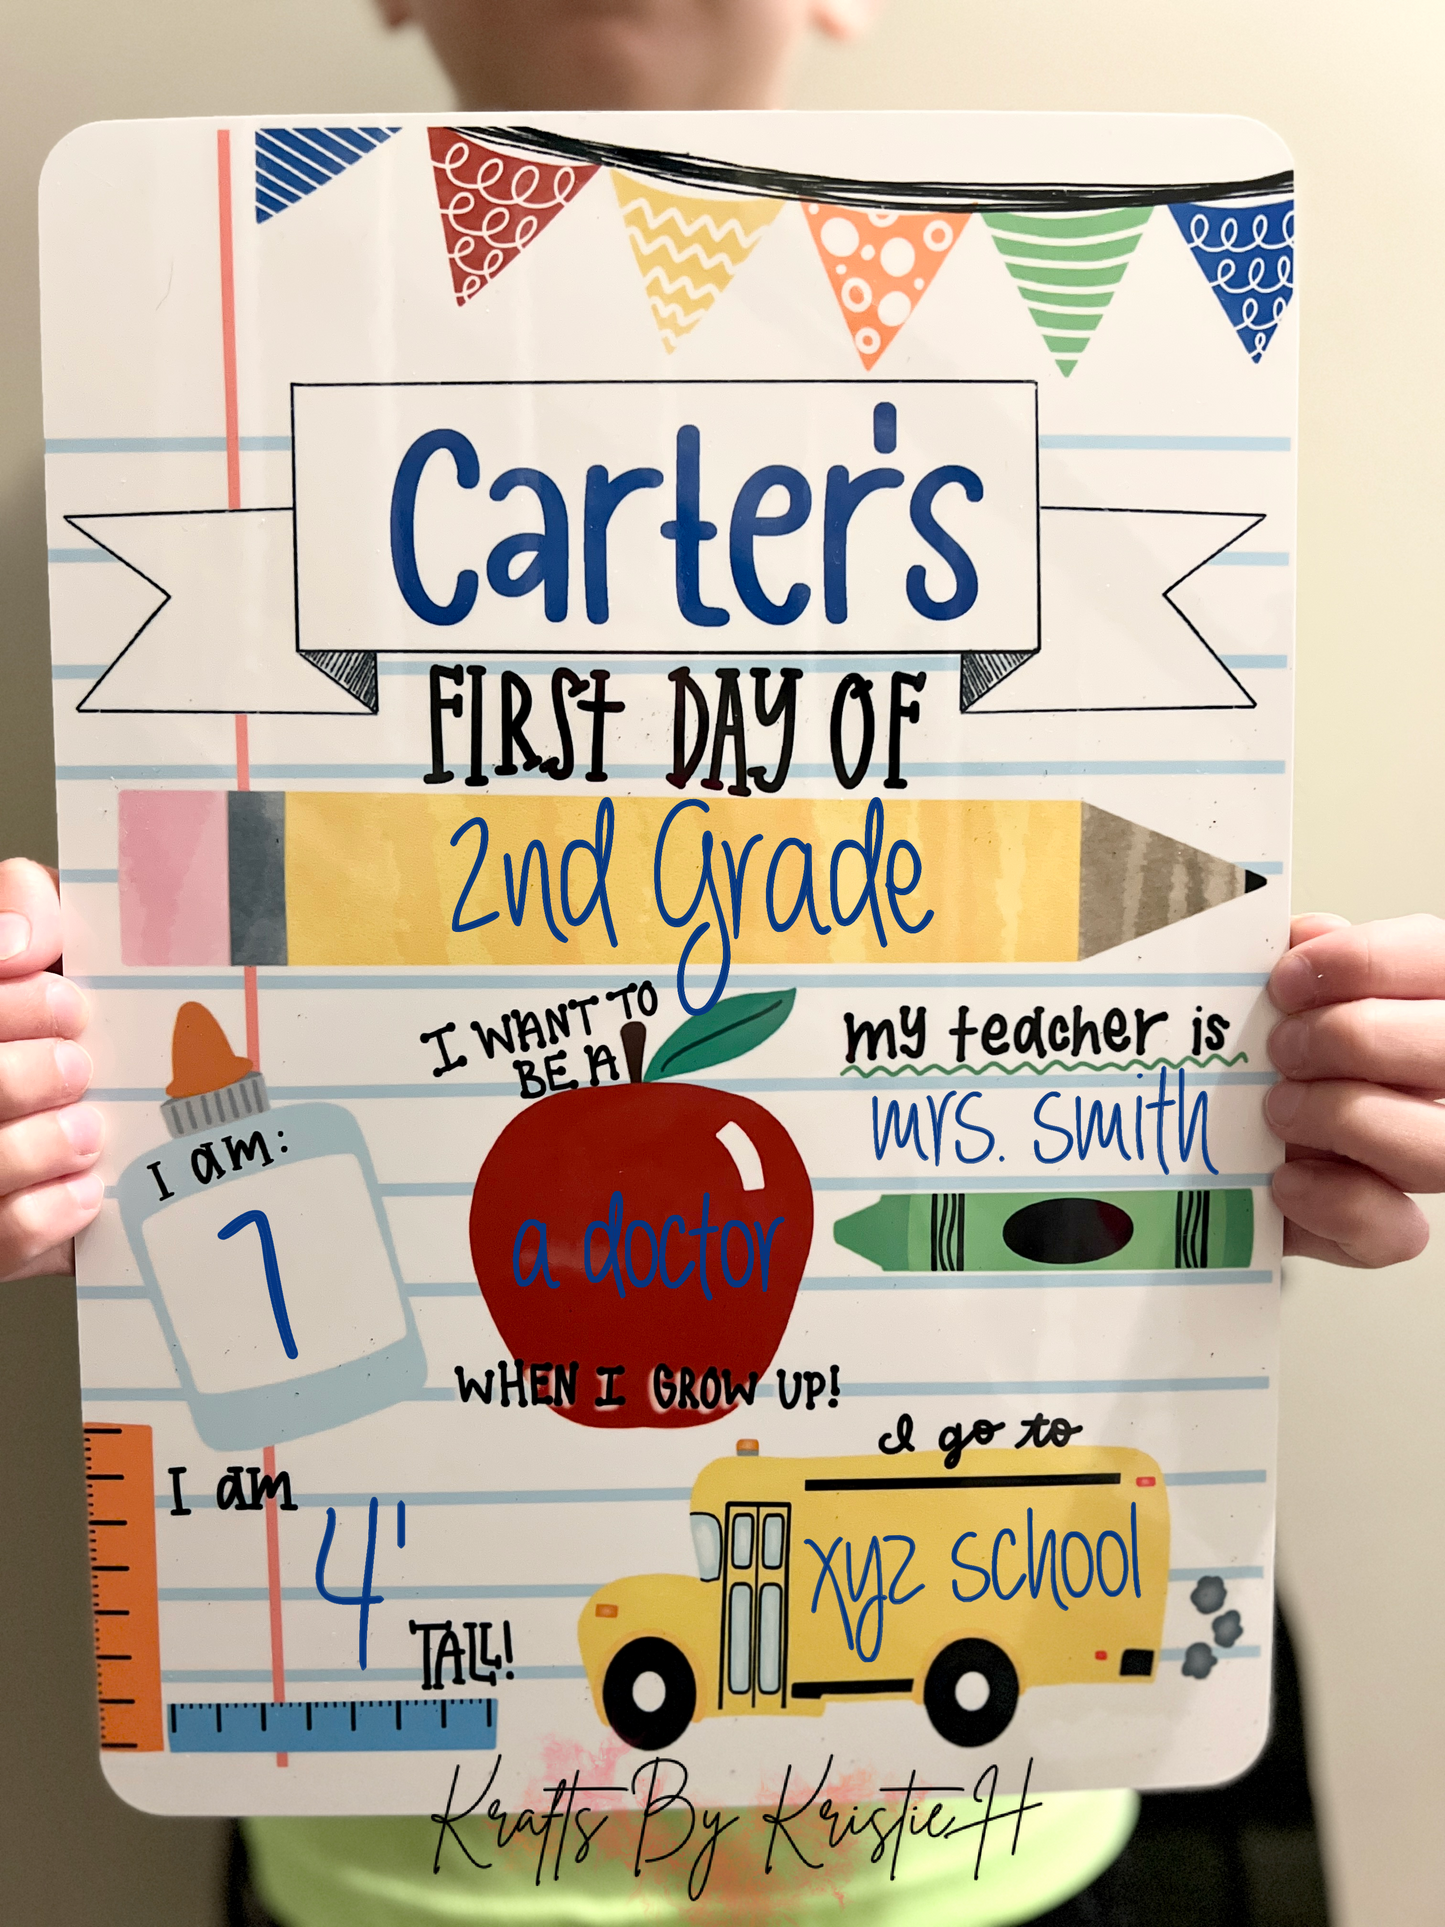 Carter's
FIRST DAY OF
2nd Grade
I WANT TO
BE A
a doctor
WHEN I GROW UP!
my teacher is
mrs. smith
I am:
7
I am
4'
TALL!
I go to
xyz school
Krafts By Kristie H